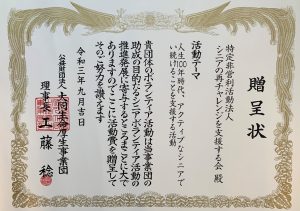 贈呈状
特定非営利活動法人
シニアの再チャレンジを支援する会 殿
活動テーマ
人生100年時代、アクティブなシニアで
い続けることを支援する活動
貴団体のボランティア活動は当事業団の
助成の目的であるシニアボランティア活動の
推進発展に寄与するところまことに大で
ありますのでここに活動費を贈呈して
そのご努力を讃えます
令和三年九月吉日
公益財団法人 大同生命厚生事業団
理事長 工藤 稔